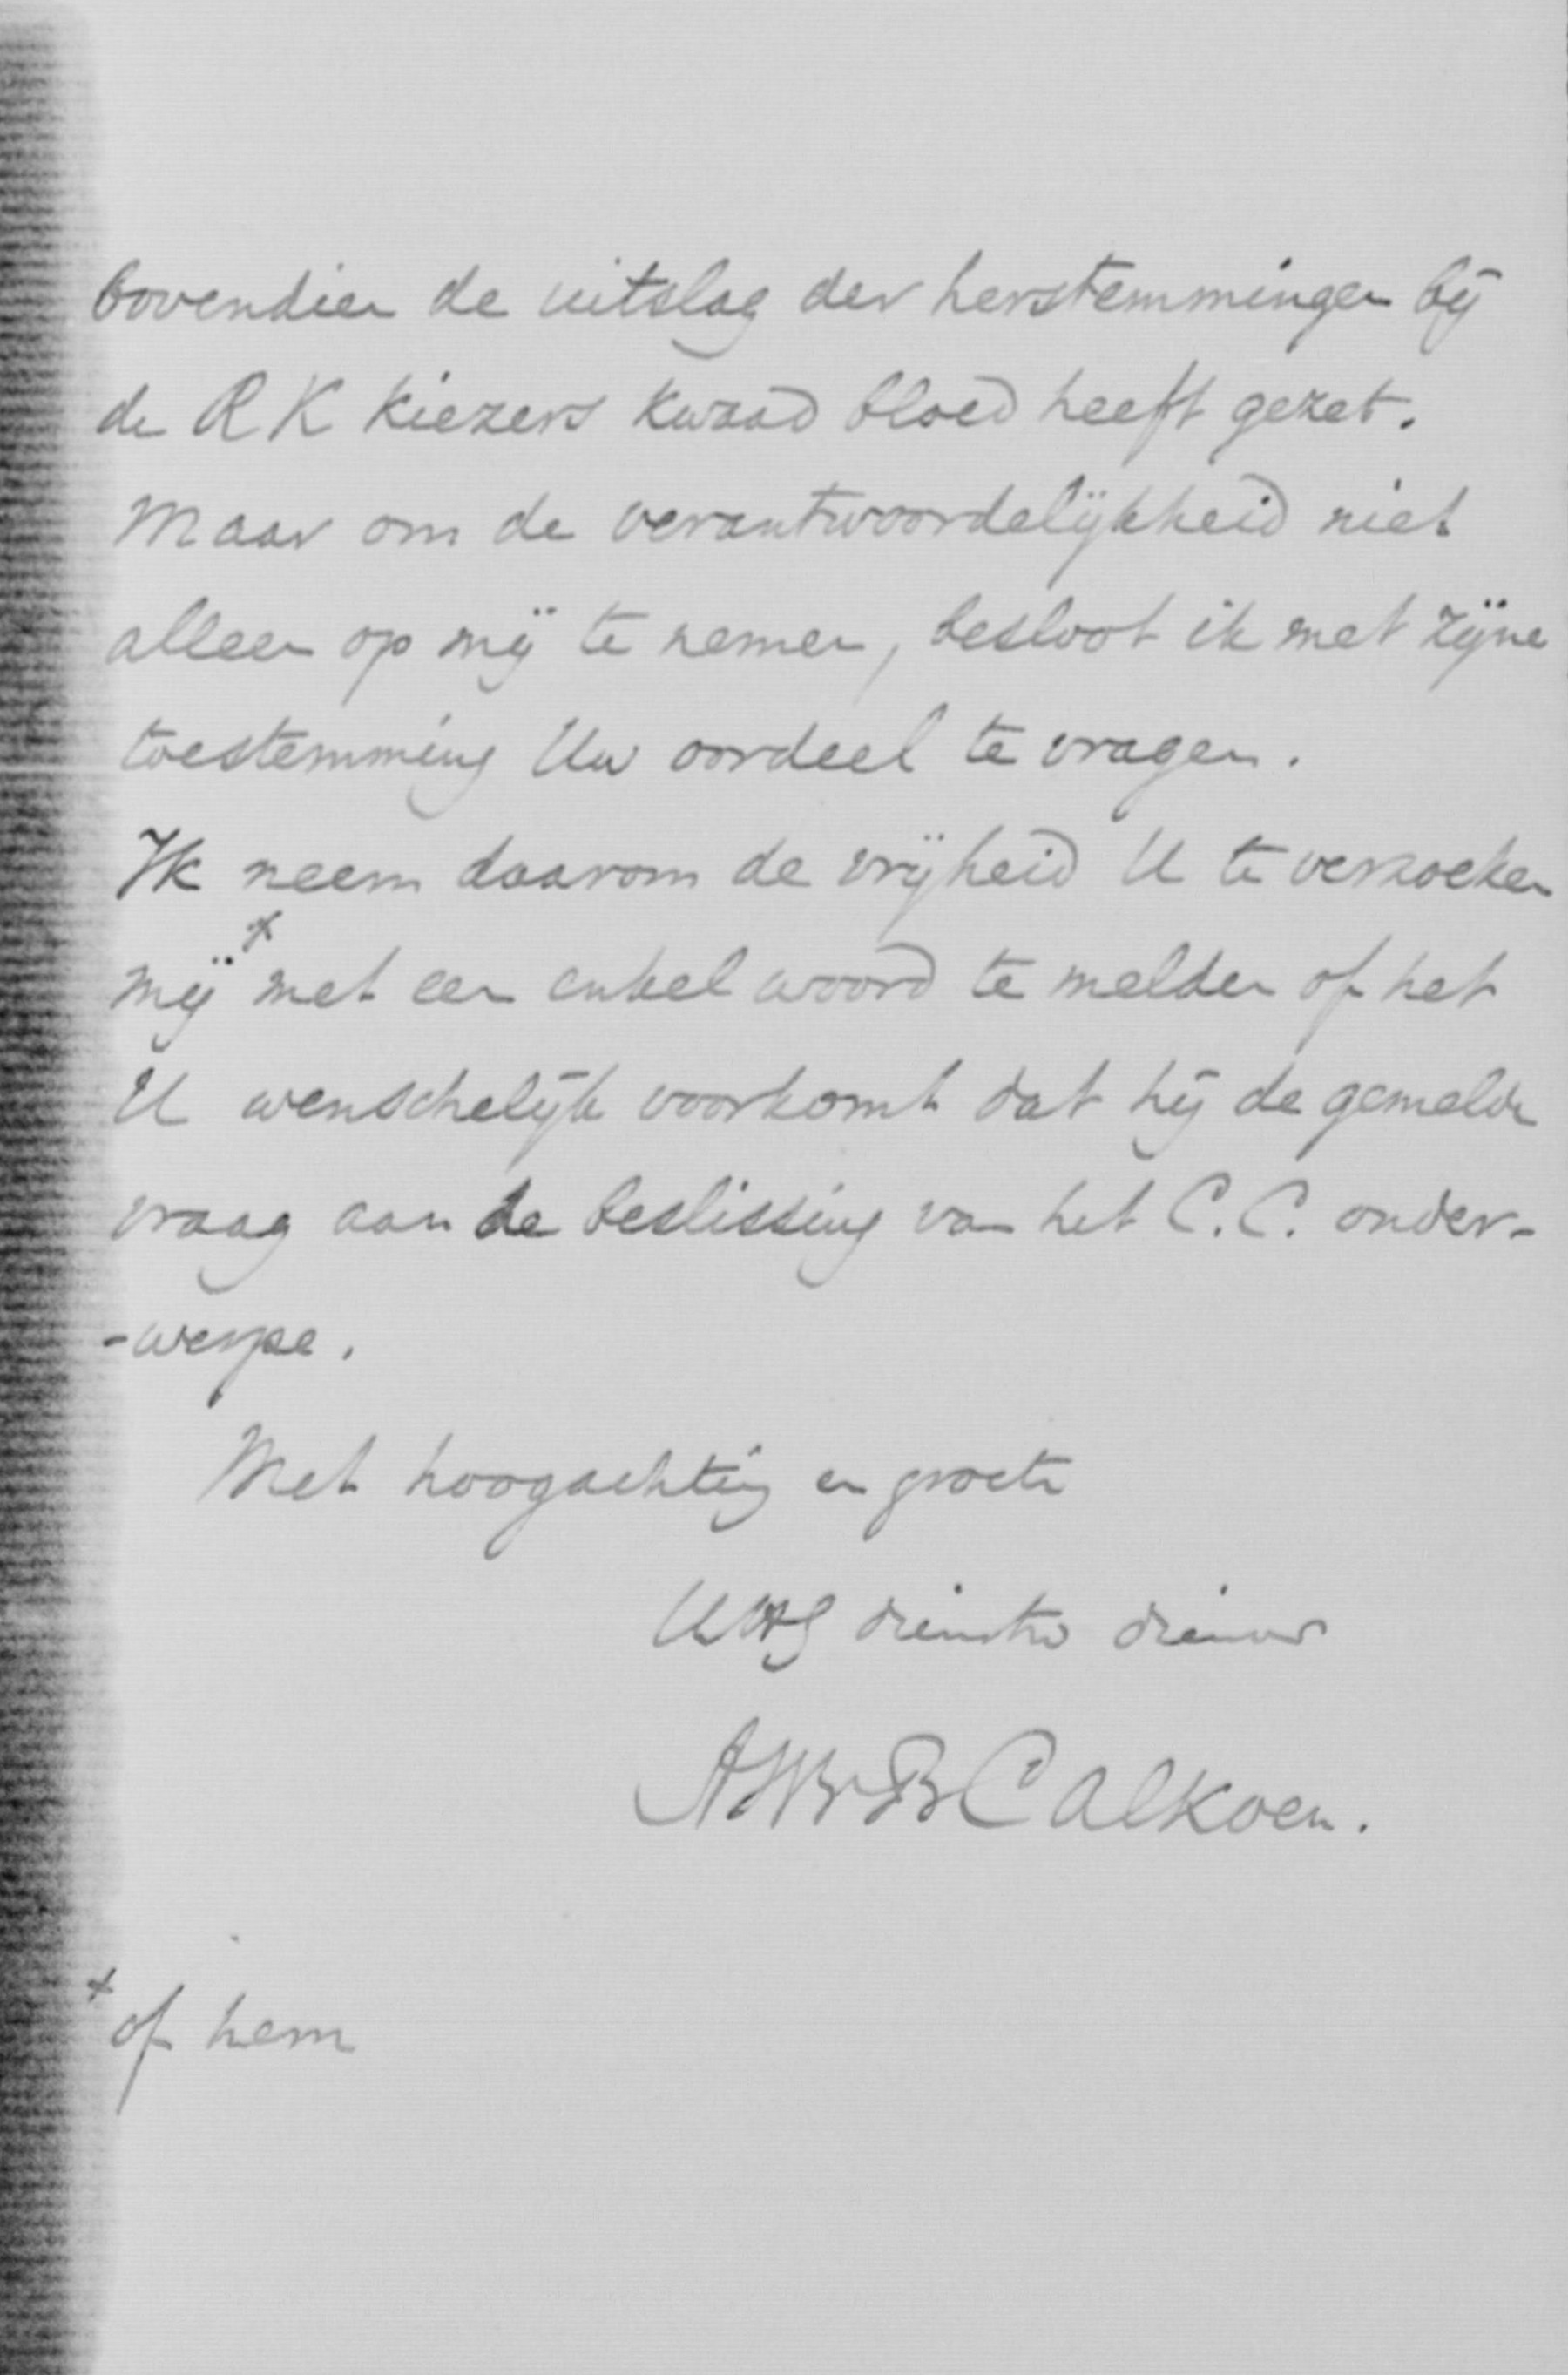 bovendien de uitslag der herstemmingen bij
de R K kiezers kwaad bloed heeft gezet.
Maar om de verantwoordelijkheid niet
alleen op mij te nemen, besloot ik met zijne
toestemming Uw oordeel te vragen.
Ik neem daarom de vrijheid U te verzoeken
mij x met een enkel woord te melden of het
U wenschelijk voorkomt dat hij de gemelde
vraag aan de beslissing van het C.C. onder-
-werpe.
Met hoogachting en groete
dienstw dienaar
Calkoen.
x of hem